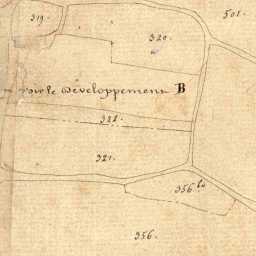 319
501
320
voir le Développement B
322
321
356 bis
356.